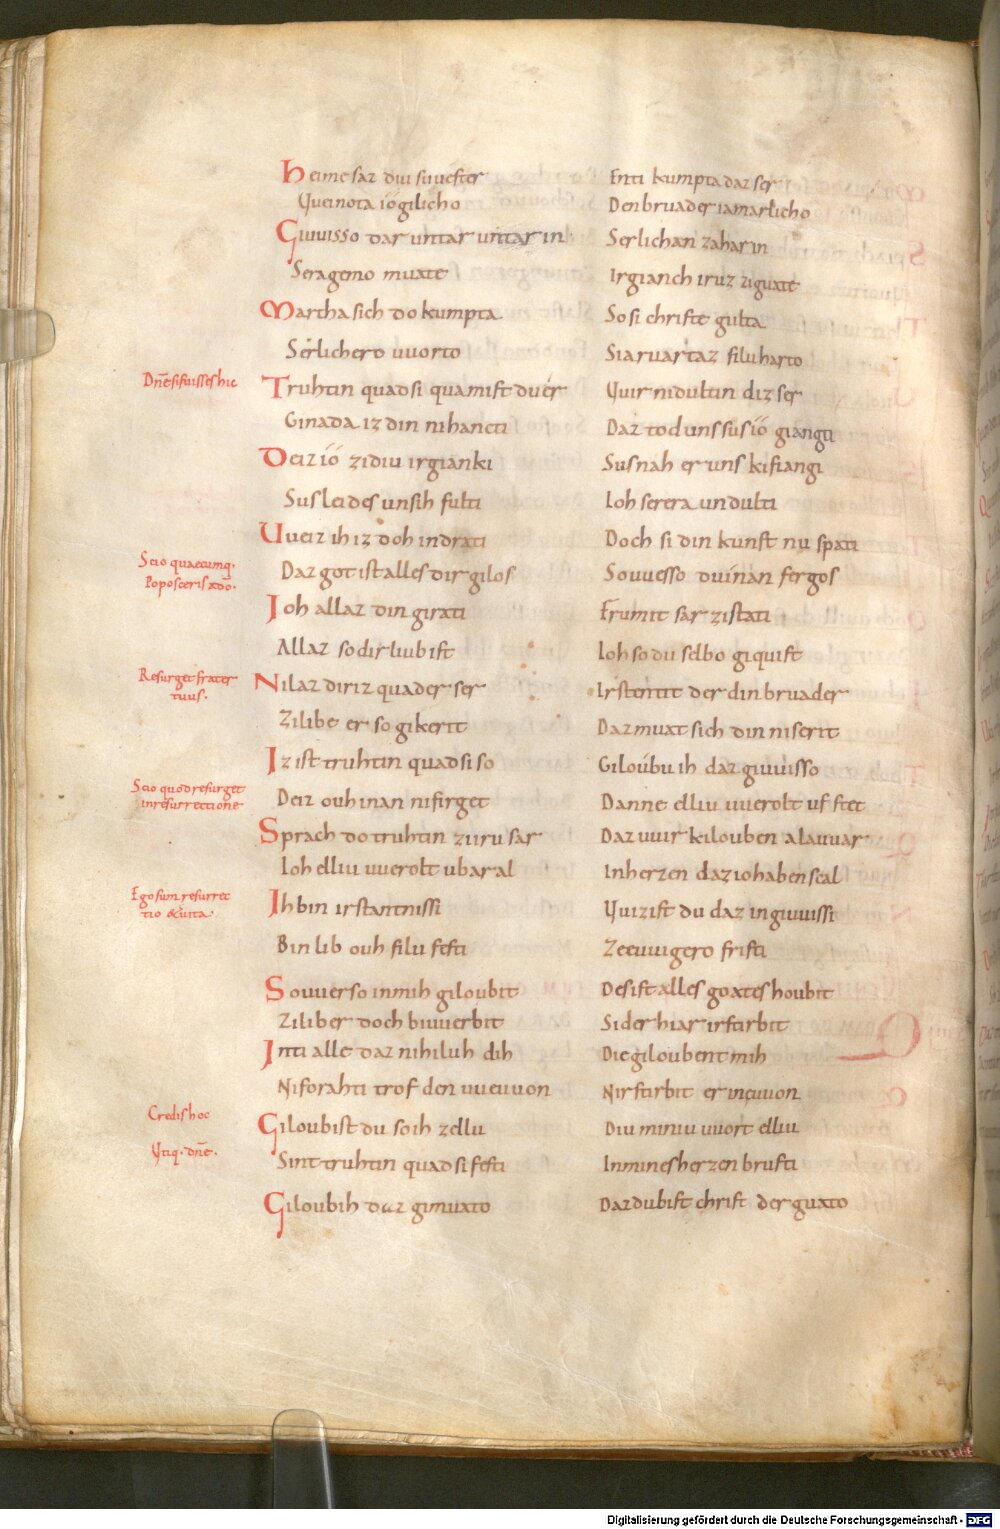 Heime saz diu suuester Enti kumpta daz ser
Yueinota iogilicho Den bruader iamarlicho
Giuuisso dar untar untar in Serlichan zaharin
Seragemo muate Irgianch iruz ziguate
Martha sich do kumpta So si christe gulta
Serlichero uuorto Siaruuartaz filu harto
Dn̄e si fuisses hic
Truhtin quad si quamist du er Yuir ni dultin diz ser
Ginada iz din nihancti Daz tod uns sus io giangti
Deiz io zi diu irgianki Sus nah er uns kifiangi
Sus leides unsih fulti Ioh serera undulti
Uueiz ih iz doh in drati Doch si din kunft nu spati
Scio quaecumq;
Poposceris a dō.
Daz got ist alles dir gilos So uuesso duinan fergos
Ioh allaz din girati Frumit sar zistati
Allaz so dir liub ist Ioh so du selbo giquist
Resurget frater
tuus.
Ni laz dir iz quad er ser Irstentit der din bruader
Zi libe er so gikerit Daz muat sich din ni serit
Iz ist truhtin quad si so Giloubu ih daz giuuisso
Scio quod resurget
in resurrectione
Deiz ouh inan nifirget Danne elliu uuerolt uf stet
Sprach do truhtin zi iru sar Daz uuir kilouben alauuar
Ioh elliu uuerolt ubar al In herzen daz io haben scal
Ego sum resurrec
tio & uita.
Ih bin irstantnissi Yuizist du daz in giuuissi
Bin lib ouh filu festi Ze euuigero fristi
So uuer so in mih giloubit Des ist alles goates houbit
Zi liber doch biuuerbit Sider hiar irstirbit
Inti alle daz nihiluh dih Die giloubent mih
Ni forahti trof den uueuuon Nirstirbit er in euuon
Credis hoc
Giloubist du so ih zellu Diu miniu uuort elliu
Utiq. dn̄e.
Sint truhtin quad si festi In mines herzen brusti
Giloub ih daz gimuato Daz du bist christ der guato
Digitalisierung gefördert durch die Deutsche Forschungsgemeinschaft - DFG